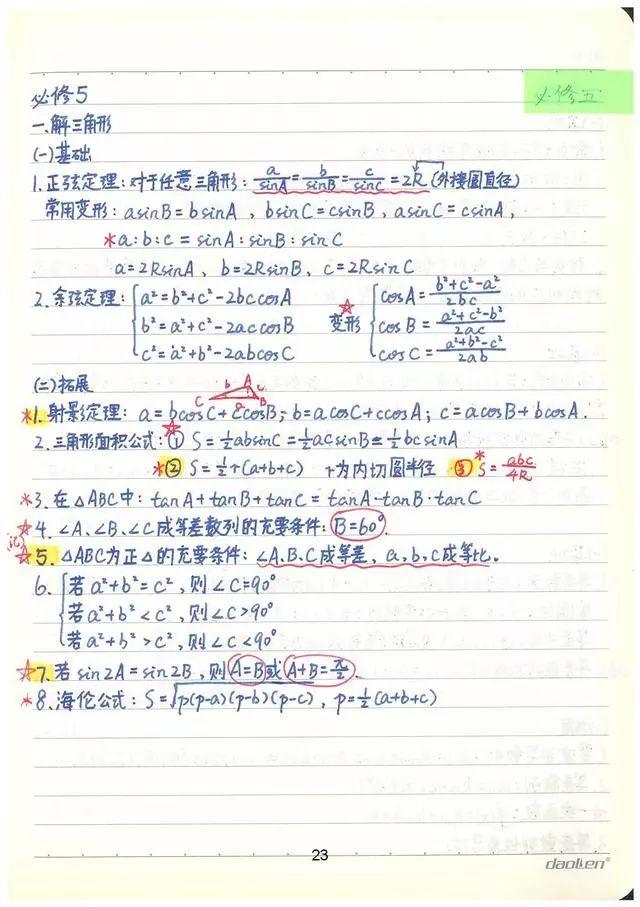 必修5
必修五
一、解三角形
(一)基础
1.正弦定理:对于任意三角形: a/sinA = b/sinB = c/sinC = 2R (外接圆直径)
常用变形: asinB=bsinA , bsinC=csinB, asinC=csinA,
*a:b:c = sinA:sinB:sinC
a=2RsinA, b=2RsinB, c=2RsinC
2.余弦定理: { a²=b²+c²-2bccosA 变形 { cosA= (b²+c²-a²)/2bc
b²=a²+c²-2accosB cosB= (a²+c²-b²)/2ac
c²=a²+b²-2abcosC cosC= (a²+b²-c²)/2ab
(二)拓展
b A c
C a B
*1.射影定理: a=bcosC+ccosB; b=acosC+ccosA; c=acosB+bcosA.
2.三角形面积公式: ☆① S=½absinC=½acsinB=½bcsinA
*② S=½r(a+b+c) r为内切圆半径 *③ S=abc/4R
*3.在△ABC中: tanA+tanB+tanC=tanA·tanB·tanC
☆4.∠A、∠B、∠C成等差数列的充要条件: B=60°.
(记)
☆5.△ABC为正△的充要条件: ∠A、B、C成等差, a、b、c成等比。
6. { 若a²+b²=c²,则∠C=90°
若a²+b²<c²,则∠C>90°
若a²+b²>c²,则∠C<90°
☆7.若sin2A=sin2B,则A=B或A+B=π/2.
*8.海伦公式: S=√p(p-a)(p-b)(p-c) , p=½(a+b+c)
23
daolen